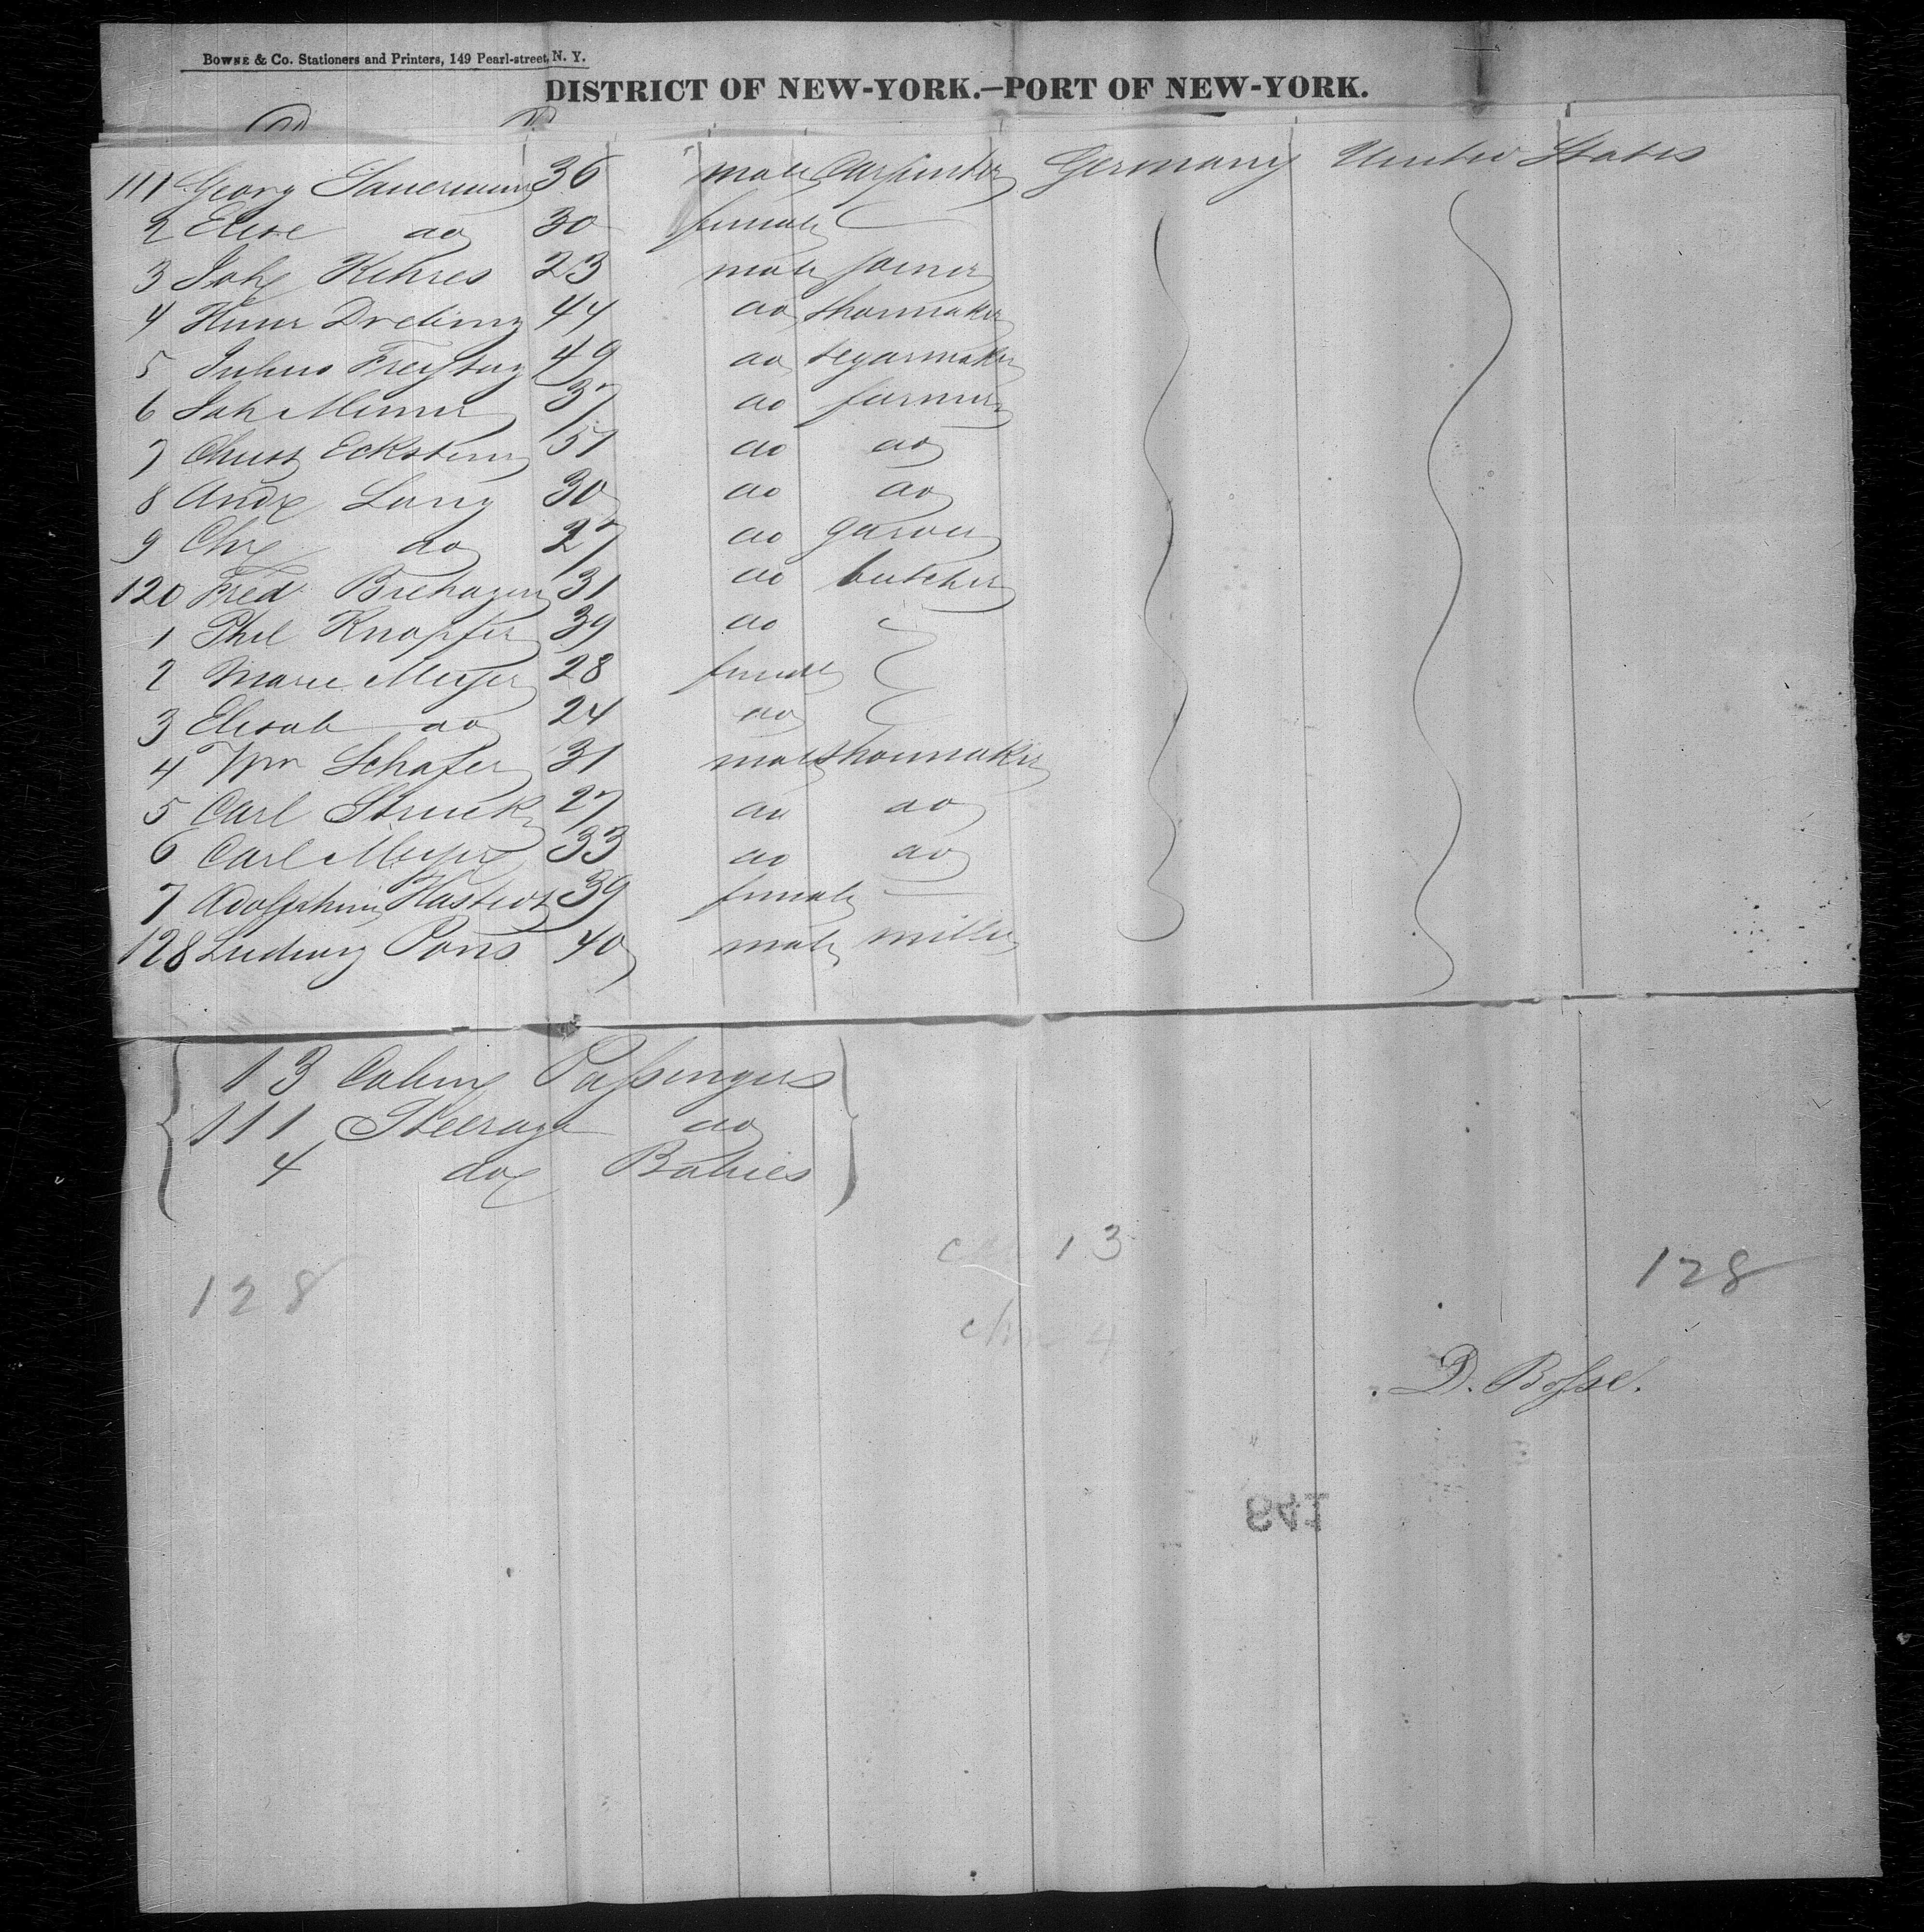 BOWNE & Co. Stationers and Printers, 149 Pearl-street, N. Y.
DISTRICT OF NEW-YORK.—PORT OF NEW-YORK.
111 Georg 36 male Carpenter Germany United States
2 Elise do 30 female
3 Joh Kehres 23 male joiner
4 44 do shoemaker
5 Julius Freytag 49 do segarmaker
6 Joh 37 do farmer
7 Christ Eckstein 51 do do
8 Andr Lang 30 do do
9 Chr do 27 do
120 Fred 31 do butcher
1 Phil Knopfer 39 do
2 Marie Meyer 28 female
3 Elisab do 24 do
4 Wm Schafer 31 male shoemaker
5 Carl Struck 27 do do
6 Carl Meyer 33 do do
7 39 female
128 Ludwig Pons 40 male miller
13 Cabin Passengers
111 Steerage do
4 do Babies
13
128
128
4
D. Bosse.
641